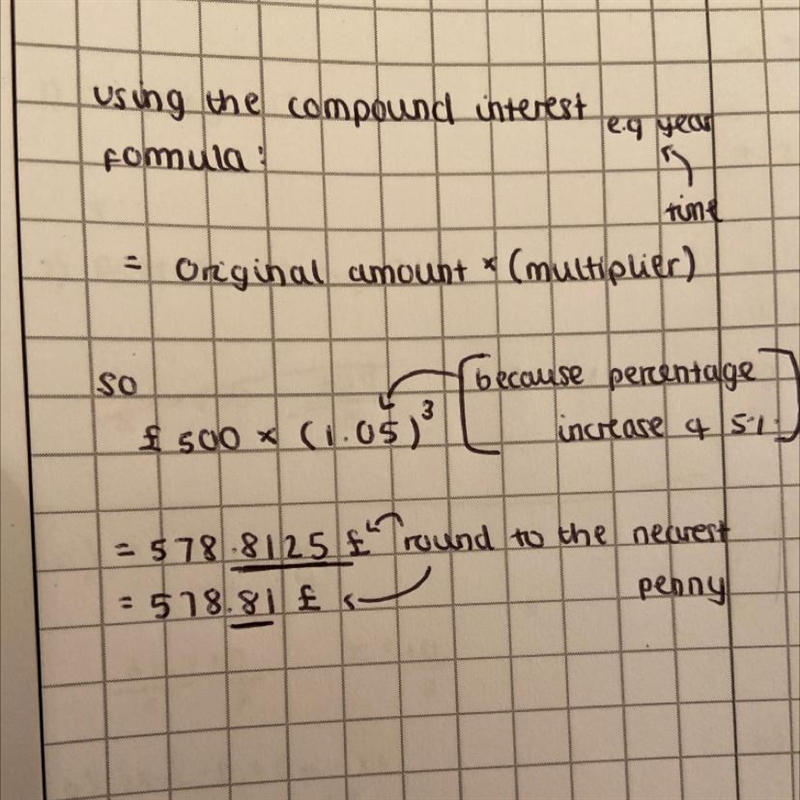 using the compound interest
e.g year
formula:
time
= original amount × (multiplier)
so
[because percentage
£ 500 × (1.05)³
increase of 5%]
= 578.8125 £ round to the nearest
= 578.81 £
penny